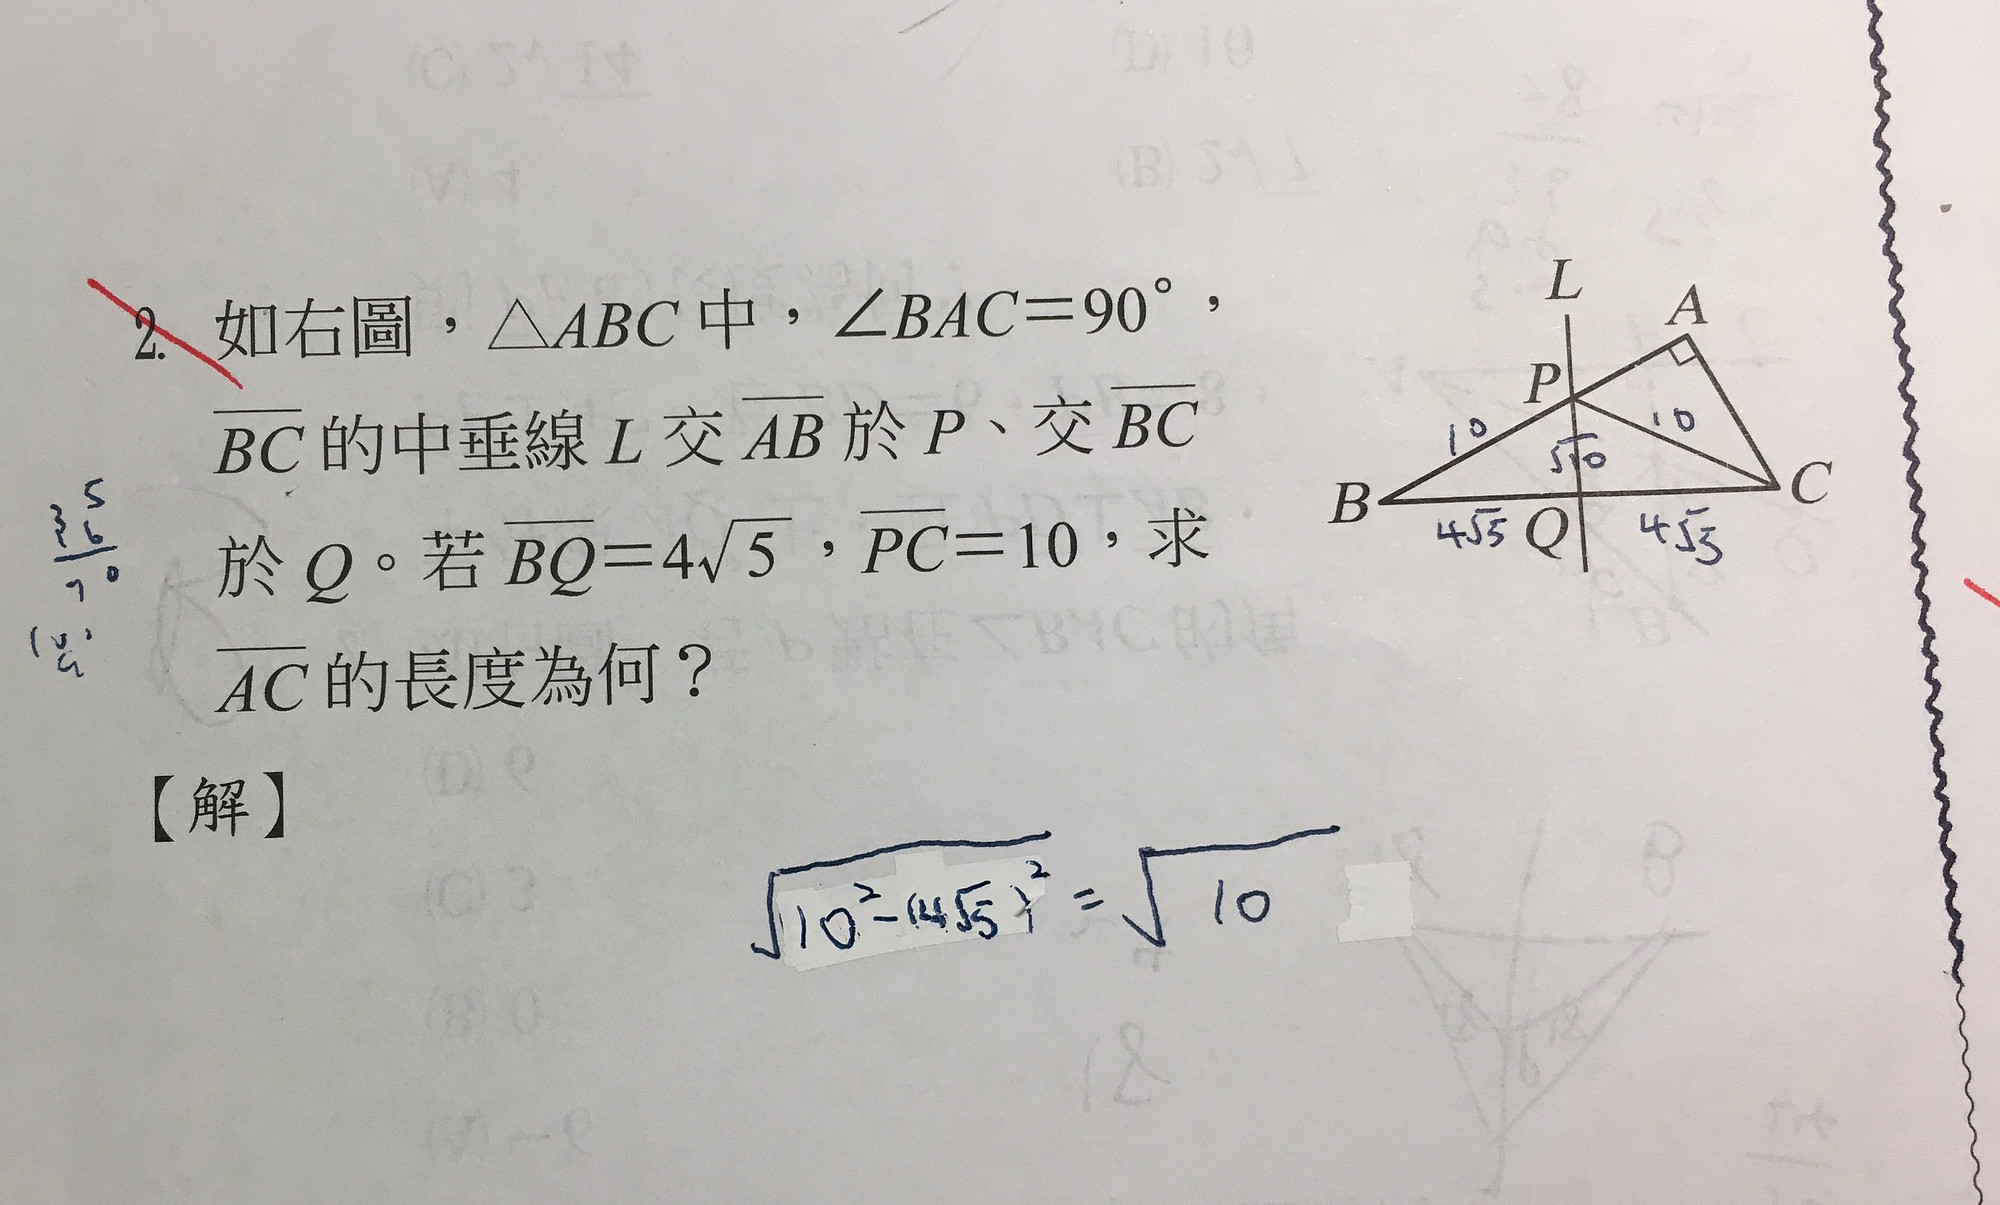 2. 如右圖，△ABC中，∠BAC＝90°，
BC的中垂線L交AB於P、交BC
於Q。若BQ＝4√5，PC＝10，求
AC的長度為何？
【解】
L
A
P
10
10
B
C
4√5
Q
4√5
√10²-(4√5)²=√10